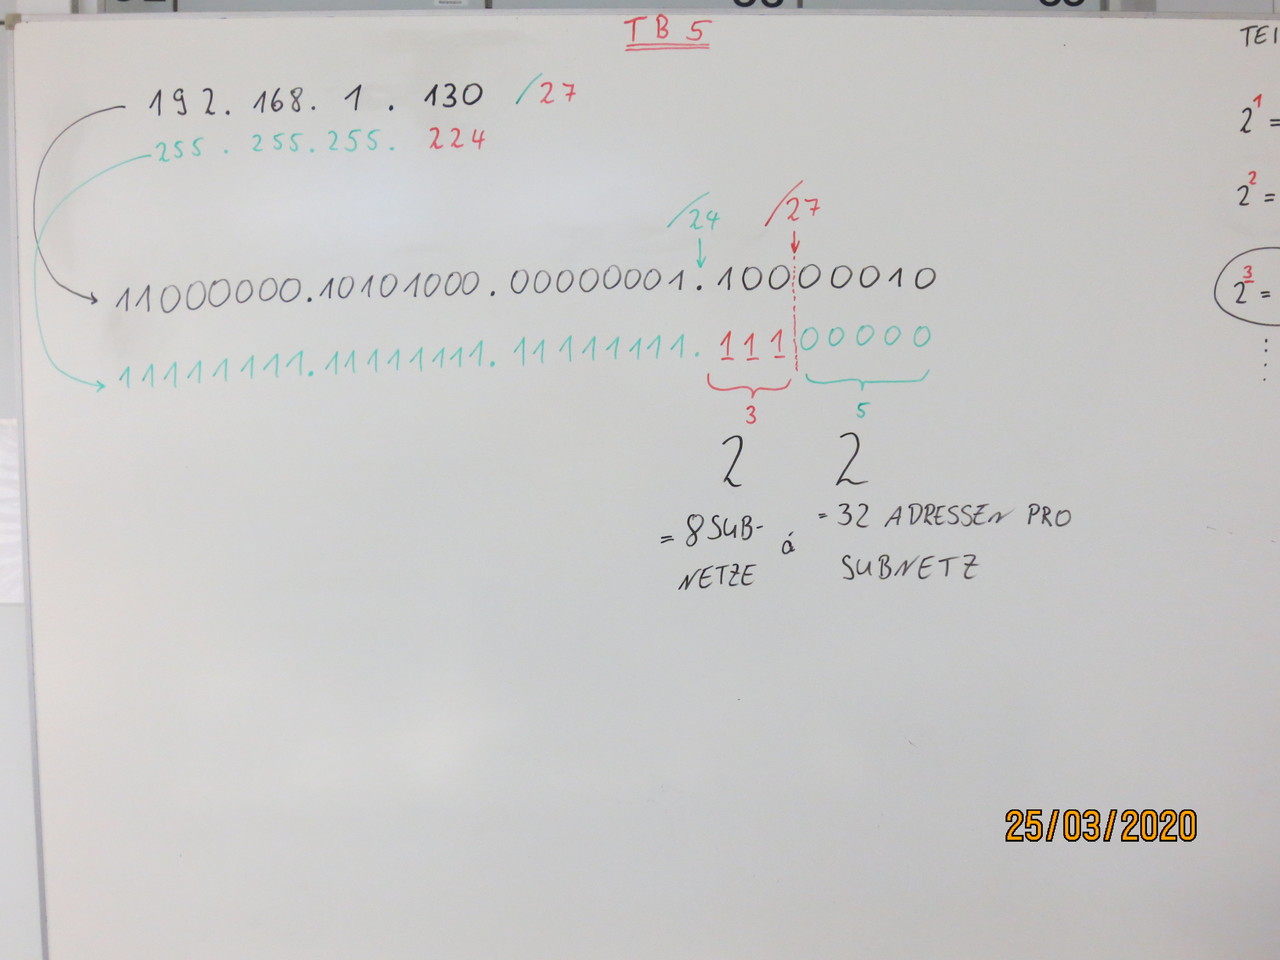 TB 5
192. 168. 1 . 130 /27
255 . 255. 255. 224
/24 /27
11000000.10101000.00000001.10000010
11111111.11111111.11111111.11100000
3 5
2 2
= 8 SUB-
NETZE
á
= 32 ADRESSEN PRO
SUBNETZ
TEI
2¹ =
2² =
2³ =
25/03/2020